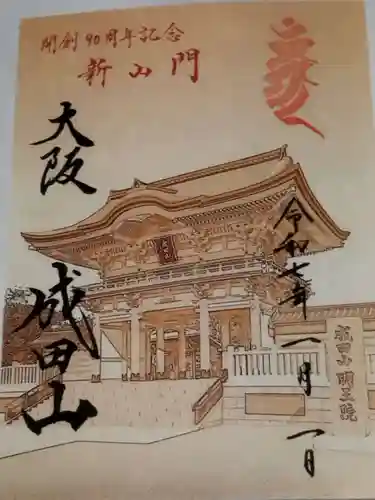 開創90周年記念
新山門
大阪
成田山
令和七年八月一日
成田山
成田山明王院